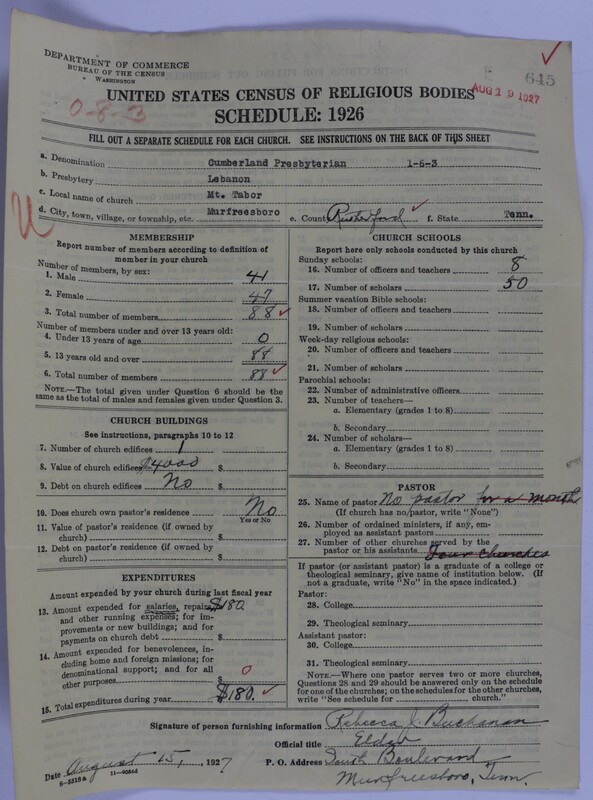 DEPARTMENT OF COMMERCE
BUREAU OF THE CENSUS
WASHINGTON
645
AUG 19 1927
UNITED STATES CENSUS OF RELIGIOUS BODIES
0-8-3
SCHEDULE: 1926
FILL OUT A SEPARATE SCHEDULE FOR EACH CHURCH. SEE INSTRUCTIONS ON THE BACK OF THIS SHEET
a. Denomination Cumberland Presbyterian 1-6-3
b. Presbytery Lebanon
c. Local name of church Mt. Tabor
d. City, town, village, or township, etc. Murfreesboro e. County Rutherford f. State Tenn.
MEMBERSHIP
Report number of members according to definition of
member in your church
Number of members, by sex:
1. Male 41
2. Female 47
3. Total number of members 88
Number of members under and over 13 years old:
4. Under 13 years of age 0
5. 13 years old and over 88
6. Total number of members 88
NOTE.—The total given under Question 6 should be the
same as the total of males and females given under Question 3.
CHURCH BUILDINGS
See instructions, paragraphs 10 to 12
7. Number of church edifices 1
8. Value of church edifices $4000 $
9. Debt on church edifices No $
10. Does church own pastor's residence? No
Yes or No
11. Value of pastor's residence (if owned by
church) $
12. Debt on pastor's residence (if owned by
church) $
EXPENDITURES
Amount expended by your church during last fiscal year
13. Amount expended for salaries, repairs, $180
and other running expenses; for im-
provements or new buildings; and for
payments on church debt $
14. Amount expended for benevolences, in-
cluding home and foreign missions; for
denominational support; and for all
other purposes $ 0
15. Total expenditures during year $180.
CHURCH SCHOOLS
Report here only schools conducted by this church
Sunday schools:
16. Number of officers and teachers 8
17. Number of scholars 50
Summer vacation Bible schools:
18. Number of officers and teachers
19. Number of scholars
Week-day religious schools:
20. Number of officers and teachers
21. Number of scholars
Parochial schools:
22. Number of administrative officers
23. Number of teachers—
a. Elementary (grades 1 to 8)
b. Secondary
24. Number of scholars—
a. Elementary (grades 1 to 8)
b. Secondary
PASTOR
25. Name of pastor No pastor for a month
(If church has no pastor, write "None")
26. Number of ordained ministers, if any, em-
ployed as assistant pastors
27. Number of other churches served by the
pastor or his assistants four churches
If pastor (or assistant pastor) is a graduate of a college or
theological seminary, give name of institution below. (If
not a graduate, write "No" in the space indicated.)
Pastor:
28. College
29. Theological seminary
Assistant pastor:
30. College
31. Theological seminary
NOTE.—Where one pastor serves two or more churches,
Questions 28 and 29 should be answered only on the schedule
for one of the churches; on the schedules for the other churches,
write "See schedule for church."
Signature of person furnishing information Rebecca J. Buchanan
Official title Elder
Date August 15, 1927 P. O. Address South Boulevard
Murfreesboro, Tenn.